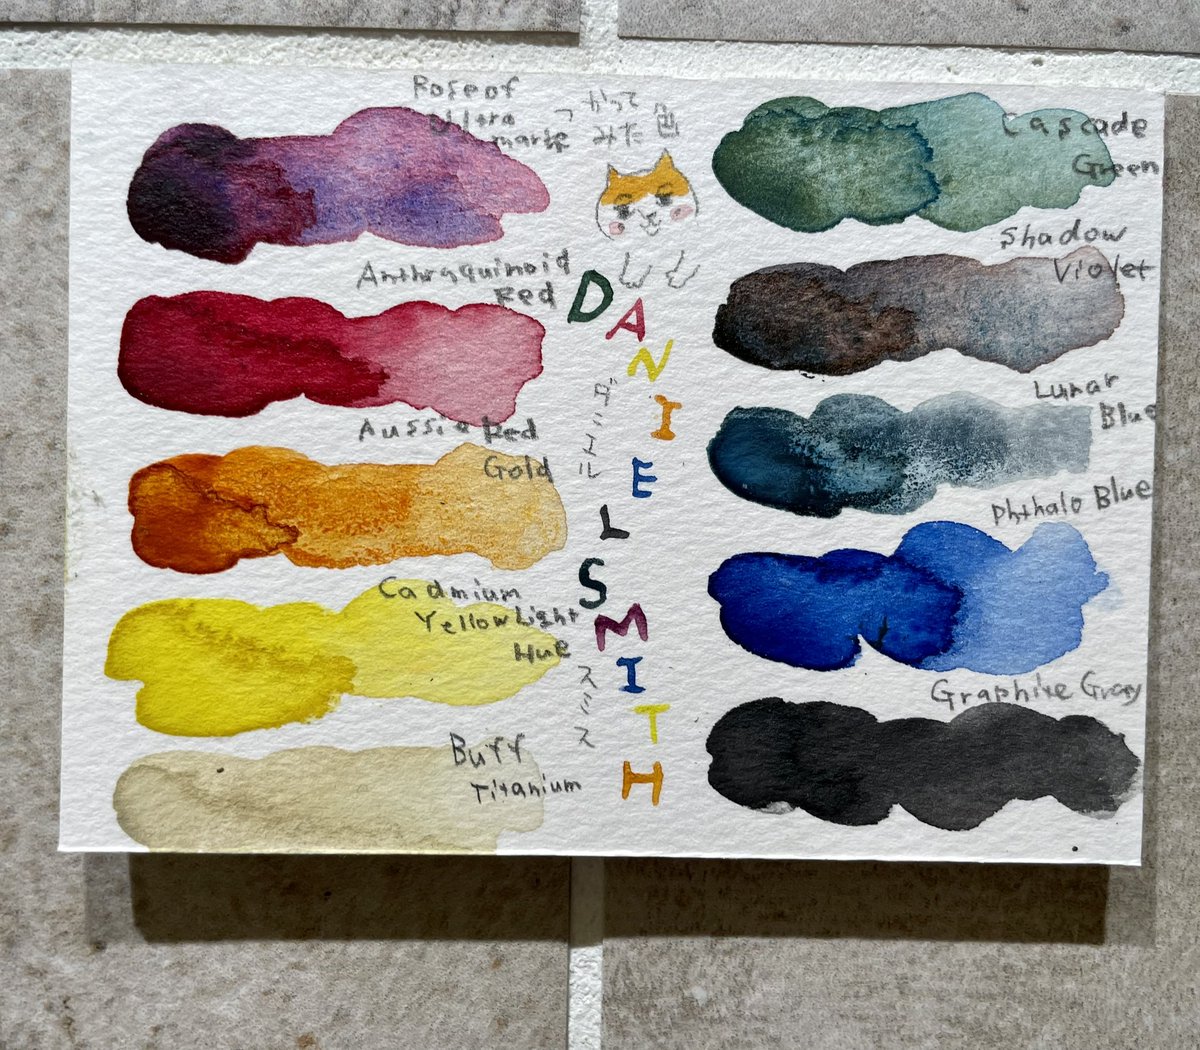 Rose of
Ultra
marine
つかって
みた色
Anthraquinoid
Red
Aussie Red
Gold
Cadmium
Yellow Light
Hue
Buff
Titanium
DANIEL SMITH
ダニエル
スミス
Cascade
Green
Shadow
Violet
Lunar
Blue
Phthalo Blue
Graphite Gray